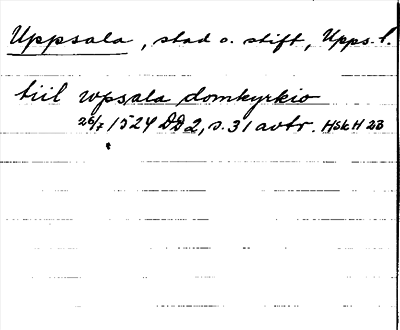 Uppsala, stad o. stift, Upps. l.
tiil wpsala domkyrkio
26/7 1524 DD2, s. 31 avtr. HSkH 23